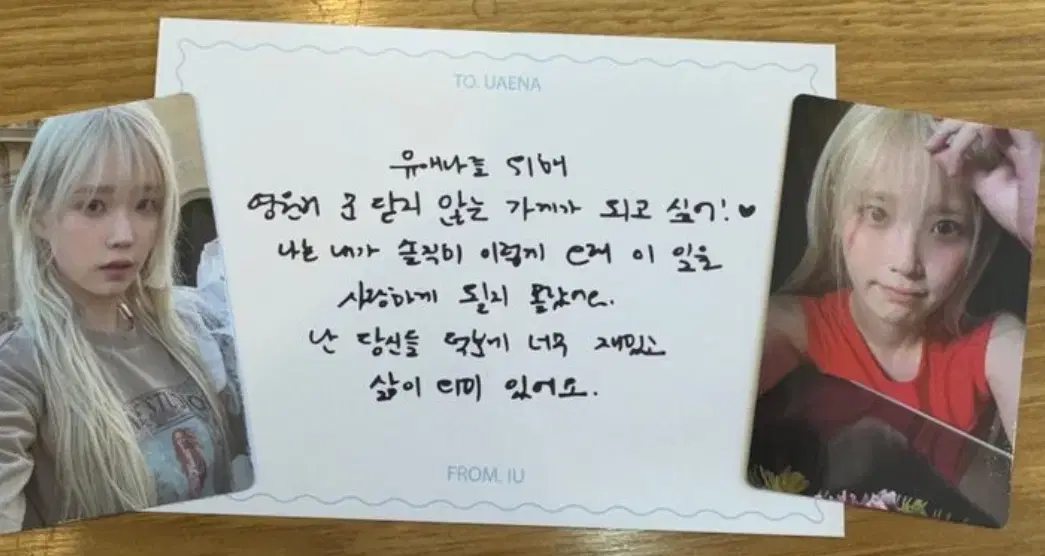 TO. UAENA
유애나를 위해
영원히 문 닫지 않는 가게가 되고 싶어!♥
나는 내가 솔직히 이렇게 오래 이 일을
사랑하게 될지 몰랐어요.
난 당신들 덕분에 너무 재밌고
삶이 의미 있어요.
FROM. IU